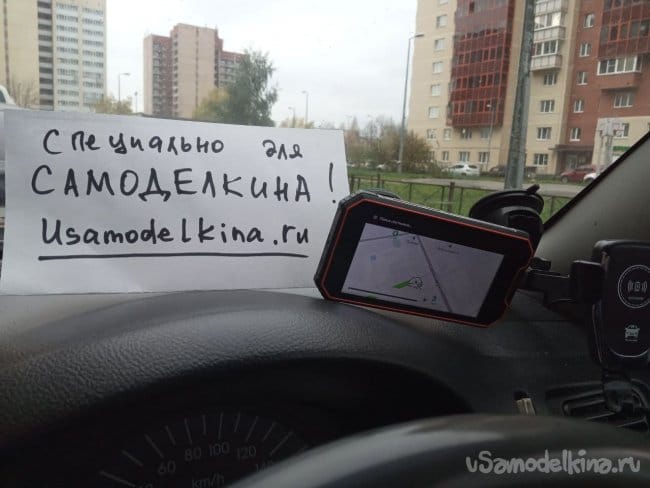 Специально для
САМОДЕЛКИНА!
Usamodelkina.ru
60 80 100 120 140
km/h
uSamodelkina.ru